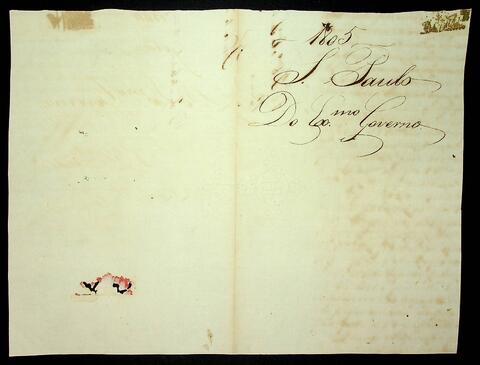 1805
S. Paulo
Do Exmo. Governo